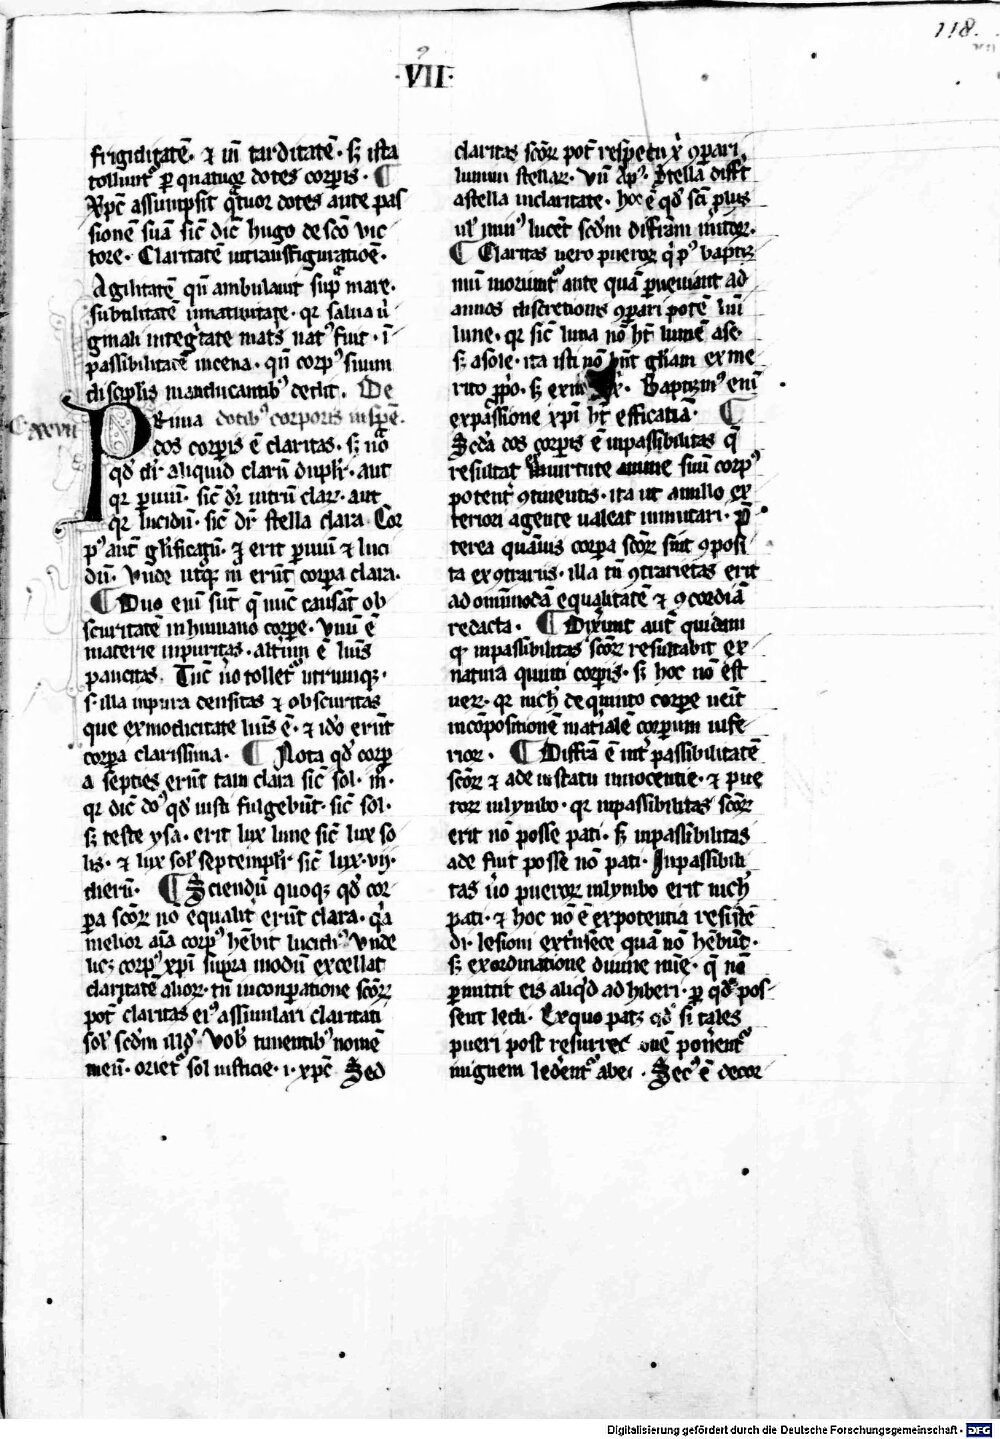 118.
·VII·
frigiditatē· ⁊ in̄ tarditatē· sꝫ ista
tollunt᷑ ꝑ quatuor dotes corꝑis· ¶
Xp̄c assumpsit q̄tuor dotes ante pas
sionē suā sic̄ dic̄ hugo de sc̄o vic
tore· Claritatē in transfiguratiōe·
Agilitatē qn̄ ambulauit sup̄ mare·
subtilitatē in natiuitate· qr salua ỻ
ginali integ̓tate mat̓s nat᷒ fuit· ī
passibilitatē in cena· qn̄ corp᷒ suum
discipl̓is manducantib᷒ dedit· De
Prima dotib᷒ corporis in spē·
cxxvii
dos corꝑis ē claritas· sꝫ nō
qd̓ dr̄ aliquid clarū dupl̓r· aut
qr ꝑuiū· sic̄ dr̄ uitrū clar̄· aut
qr lucidū· sic̄ dr̄ stella clara Cor
p᷒ aūt gl̓ificatū· ꝫ erit ꝑuiū ⁊ luci
dū· Vnde utqꝫ m̄ erūt corꝑa clara·
¶ Duo eni᷒ sūt q̄ nūc causāt ob
scuritatē in humano corꝑe· Vnū ē
materie inpuritas· altūm ē luīs
paucitas· Tūc ṽo tollet᷑ utrumqꝫ·
s· illa inpura densitas ⁊ obscuritas
que ex modicitate luīs ē· ⁊ idō erūt
corꝑa clarissima· ¶ Nota qd̓ corꝑ
a septies erūt tam clara sic̄ sol· m̄·
qr dic̄ do᷒ qd̓ iusti fulgebūt· sic̄ sol·
sꝫ teste ysa· erit lux lune sic̄ lux so
lis· ⁊ lux sol̓ septempl̓r· sic̄ lux· vij·
dierū· ¶ Sciendū quoqꝫ qd̓ cor
ꝑa sc̄oꝝ nō equalit̓ erūt clara· q̓a
melior aīa corp᷒ hēbit lucidi᷒ Vnde
licꝫ corp᷒ xp̄i supra modū excellat
claritatē alioꝝ· tn̄ in conꝑatione sc̄oꝝ
pot̄ claritas ei᷒ assimilari claritati
sol̓ scd̄m illd̓· Vob̓ timentib᷒ nomē
meū· oriet᷑ sol iusticie· i· xp̄c Sed
claritas sc̄oꝝ pot̄ respectu x̄ ꝯpari
lumini stellaꝝ· Vn̄ Ap᷒· Stella differt̄
a stella in claritate· hoc ē qd̓ sc̄i plus
ul̓ min᷒ lucēt scd̄m differiam m̓itoꝝ·
¶ Claritas uero pueroꝝ q̓ p᷒ baptiz
mū moriunt᷑ ante quā ꝑueniant ad
annos discretionis ꝯpari potē luī
lune· qr sic̄ luna nō ht̄ lumē a se·
sꝫ a sole· ita isti nō hn̄t gl̓iam ex me
rito ꝓp̓o· sꝫ ex Baptizm᷒ eni᷒
ex passione xp̄i ht̄ efficatiā· ¶
Scd̄a dos corꝑis ē inpassibilitas q̄
resultat ex uirtute anime suū corp᷒
potent̓ ꝯtinentis· ita ut a nullo ex
teriori agente ualeat inmutari· P̄
terea quāuis corꝑa sc̄oꝝ sint ꝯposi
ta ex ꝯtrariis· illa tn̄ ꝯtrarietas erit
ad omnimodā equalitatē ⁊ ꝯcordiā
redacta· ¶ Dixerunt aūt quidam
qd̓ inpassibilitas sc̄oꝝ resultabit ex
natura quinti corꝑis· sꝫ hoc nō est
ueꝝ· qr nich̓ de quinto corꝑe ueīt
in cōpositionē mat̓ialē corꝑum infe
rioꝝ· ¶ Differā ē int̓ passibilitatē
sc̄oꝝ ⁊ ade in statu innocentie· ⁊ pue
roꝝ in lymbo· qr inpassibilitas sc̄oꝝ
erit nō posse pati· sꝫ inpassibilitas
ade fuit posse nō pati· Inpassibili
tas ṽo pueroꝝ in lymbo erit nich̓
pati· ⁊ hoc nō ē ex potentia resistē
di· lesioni ext̓nsēce quā nō hēbūt·
sꝫ ex ordinatione diuine iu᷒tie· q̄ nō
ꝑmittit eis aliqd̓ adhiberi· ꝑ qd̓ pos
sent ledi· Ex quo patꝫ qd̓ si tales
pueri post resurrectionē ponerent᷑
in ignem lederent᷑ ab ei· Sec᷒ ē de cor
Digitalisierung gefördert durch die Deutsche Forschungsgemeinschaft - DFG